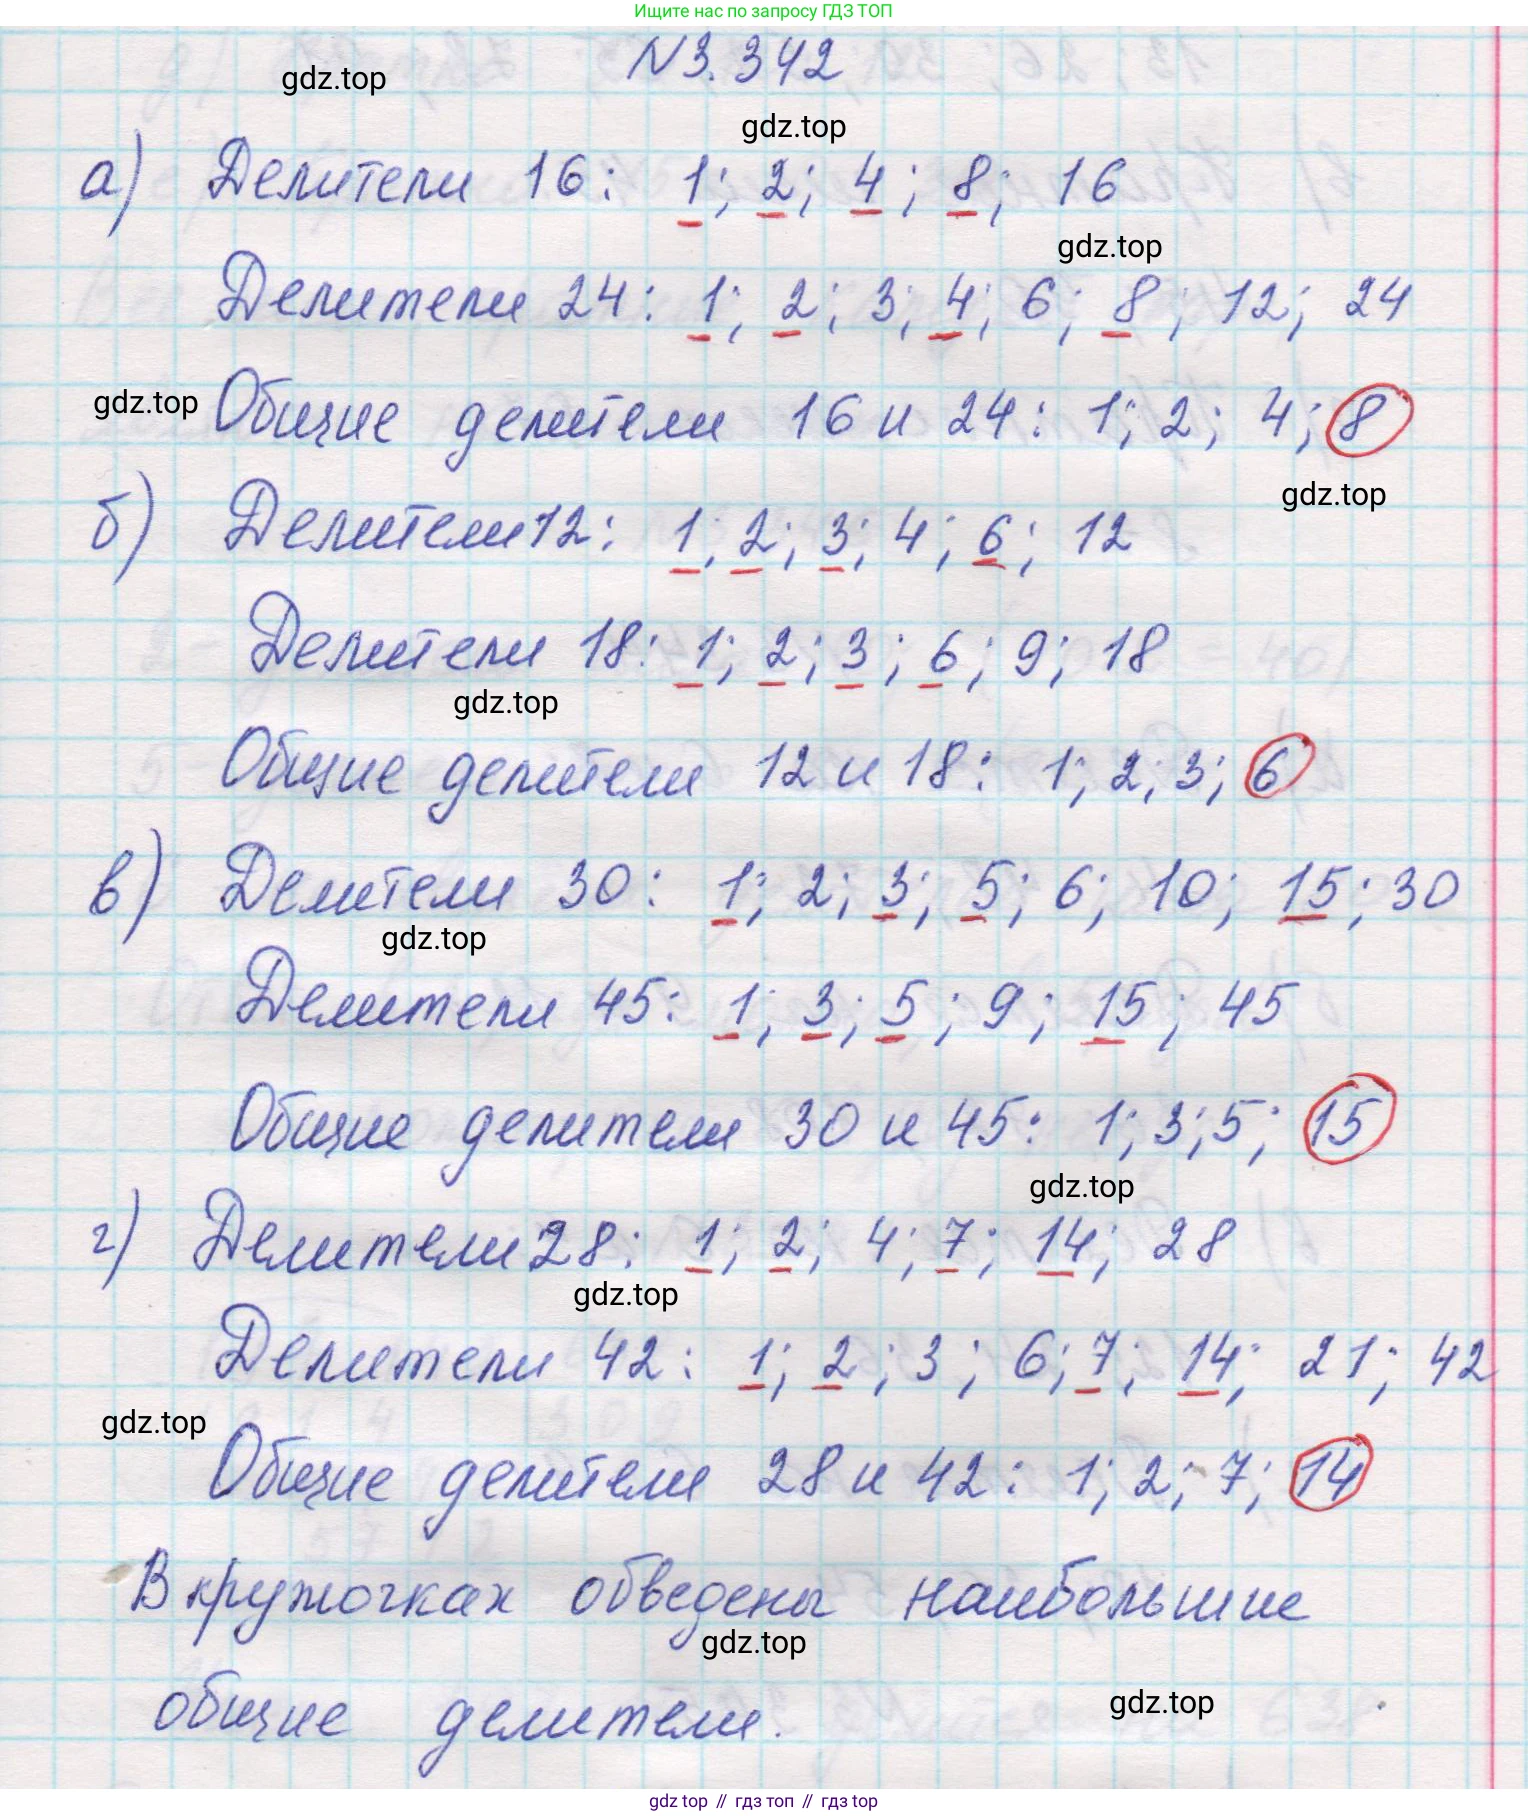 Ищите нас по запросу ГДЗ ТОП
N 3.342
gdz.top
gdz.top
а) Делители 16: 1; 2; 4; 8; 16
gdz.top
Делители 24: 1; 2; 3; 4; 6; 8; 12; 24
gdz.top
Общие делители 16 и 24: 1; 2; 4; 8
gdz.top
б) Делители 12: 1; 2; 3; 4; 6; 12
Делители 18: 1; 2; 3; 6; 9; 18
gdz.top
Общие делители 12 и 18: 1; 2; 3; 6
в) Делители 30: 1; 2; 3; 5; 6; 10; 15; 30
gdz.top
Делители 45: 1; 3; 5; 9; 15; 45
Общие делители 30 и 45: 1; 3; 5; 15
gdz.top
г) Делители 28: 1; 2; 4; 7; 14; 28
gdz.top
Делители 42: 1; 2; 3; 6; 7; 14; 21; 42
gdz.top
Общие делители 28 и 42: 1; 2; 7; 14
В кружочках обведены наибольшие
gdz.top
общие делители.
gdz.top
gdz top // гдз топ // gdz top